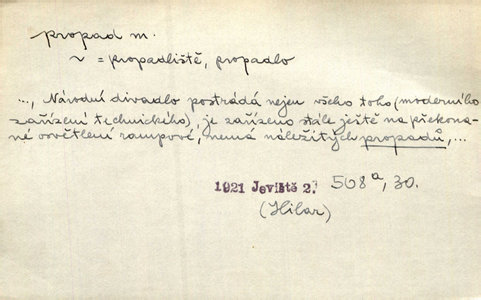 propad m.
~ = propadliště, propadlo
..., Národní divadlo postrádá nejen všeho toho (moderního
zařízení technického), je zařízeno stále ještě na překona-
né osvětlení rampové, nemá náležitých propadů, ...
1921 Jeviště 2. 568a, 30.
(Hilar)